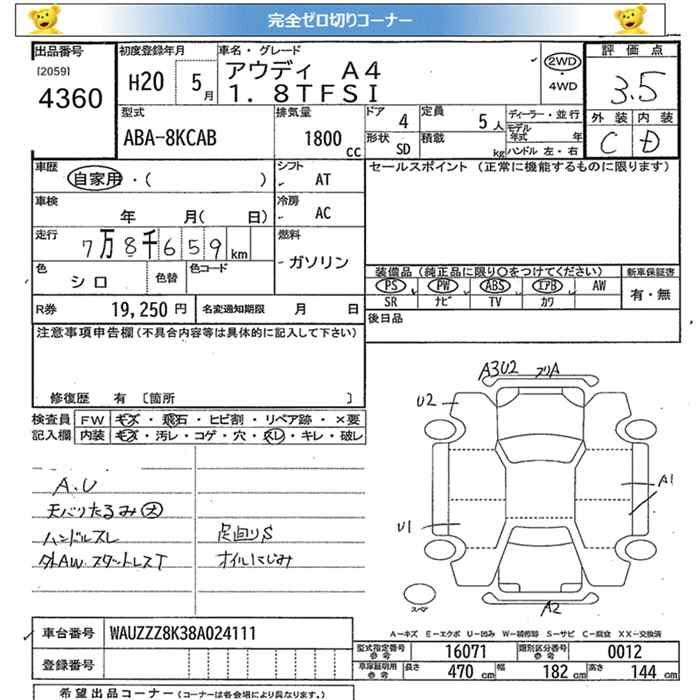 完全ゼロ切りコーナー
出品番号
[2059]
4360
初度登録年月
H20 5月
車名・グレード
アウディ A4
1.8TFSI
2WD
・
4WD
評価点
3.5
外装 内装
C D
型式
ABA-8KCAB
排気量
1800 cc
ドア 4
形状 SD
定員 5人
積載 kg
ディーラー・並行
モデル年式 年
ハンドル 左・右
車歴
自家用・( )
シフト
AT
セールスポイント (正常に機能するものに限ります)
車検
年 月( 日)
冷房
AC
走行
7万8千659km
燃料
ガソリン
色
シロ
色替
色コード
装備品(純正品に限り○をつけてください)
新車保証書
PS PW ABS エアB AW
SR ナビ TV カワ
有・無
R券 19,250円
名変通知期限 月 日
後日品
注意事項申告欄(不具合内容等は具体的に記入して下さい)
修復歴 有 〔箇所 〕
検査員記入欄
FW キズ・飛石・ヒビ割・リペア跡・×要
内装 キズ・汚レ・コゲ・穴・スレ・キレ・破レ
A.U
天バリたるみ大
ハンドルスレ
外AW.スタットレスT
足回りS
オイルにじみ
A3U2
U2
A1
U1
A2
スペア
A-キズ E-エクボ U-凹み W-補修跡 S-サビ C-腐食 XX-交換済
車台番号 WAUZZZ8K38A024111
登録番号
型式指定番号 参考 16071
類別区分番号 参考 0012
車庫証明用 参考 長さ 470cm 幅 182cm 高さ 144cm
希望出品コーナー(コーナーは各会場により異なります。)